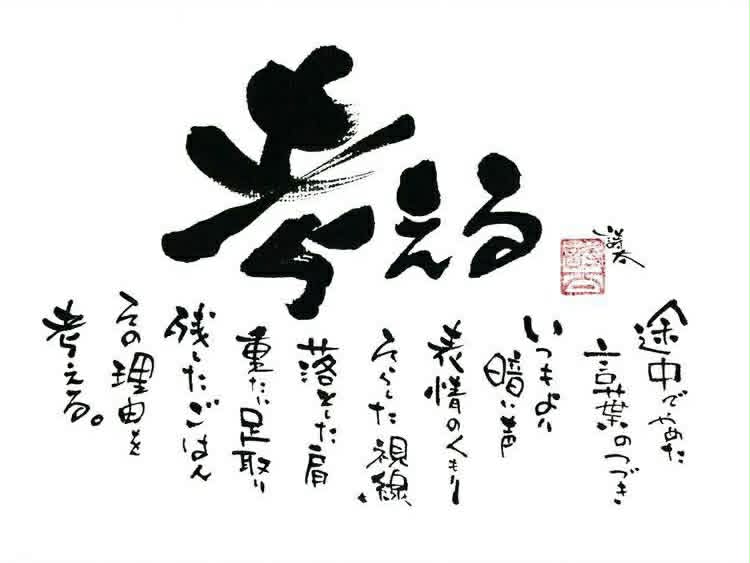 考える
途中でやめた
言葉のつづき
いつもより
暗い声
表情のくもり
そらした視線
落とした肩
重たい足取り
残したごはん
その理由を
考える。